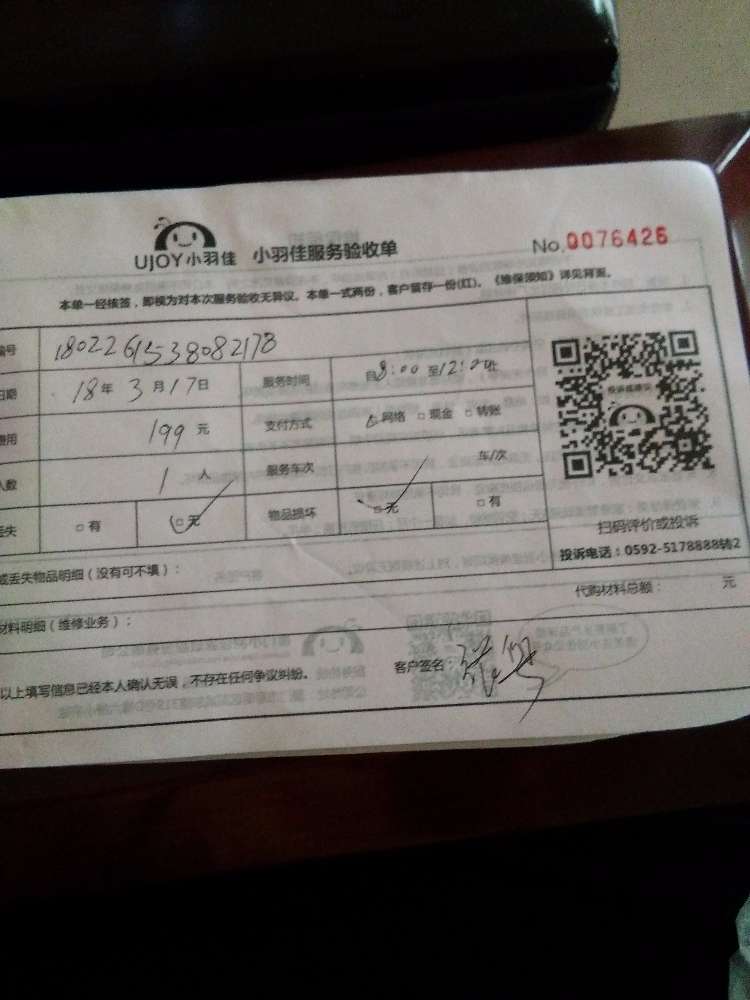 UJOY小羽佳 小羽佳服务验收单 No.0076426
本单一经核签，即视为对本次服务验收无异议。本单一式两份，客户留存一份(红)。《维保须知》详见背面。
编号 180226153808217B
日期 18年3月17日 服务时间 自8:00至12:00止
费用 199元 支付方式 □网络 □现金 □转账
人数 1人 服务车次 车/次
丢失 □有 □无 物品损坏 □无 □有
投诉或建议
扫码评价或投诉
投诉电话：0592-5178888转2
或丢失物品明细（没有可不填）：
代购材料总额： 元
材料明细（维修业务）：
以上填写信息已经本人确认无误，不存在任何争议纠纷。 客户签名：